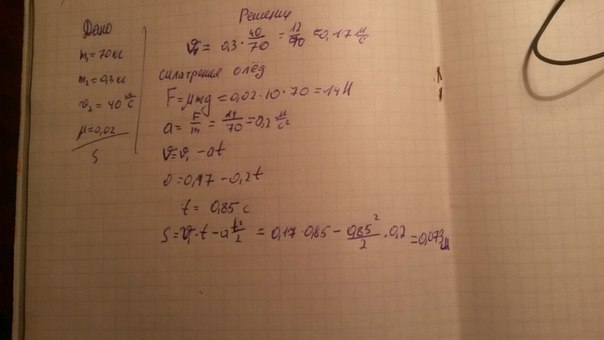 Дано
m₁=70кг
m₂=0,3кг
v₂=40 м/с
μ=0,02
S
Решение
v₁= 0.3·40/70 = 12/70 ≈0,17 м/с
сила трения о лёд
F=μmg=0,02·10·70=14Н
a=F/m=14/70=0,2 м/с²
v=v₁-at
0=0,17-0,2t
t= 0,85 с
S=v₁·t-at²/2 = 0,17·0,85-0,85²/2·0,2=0,073м